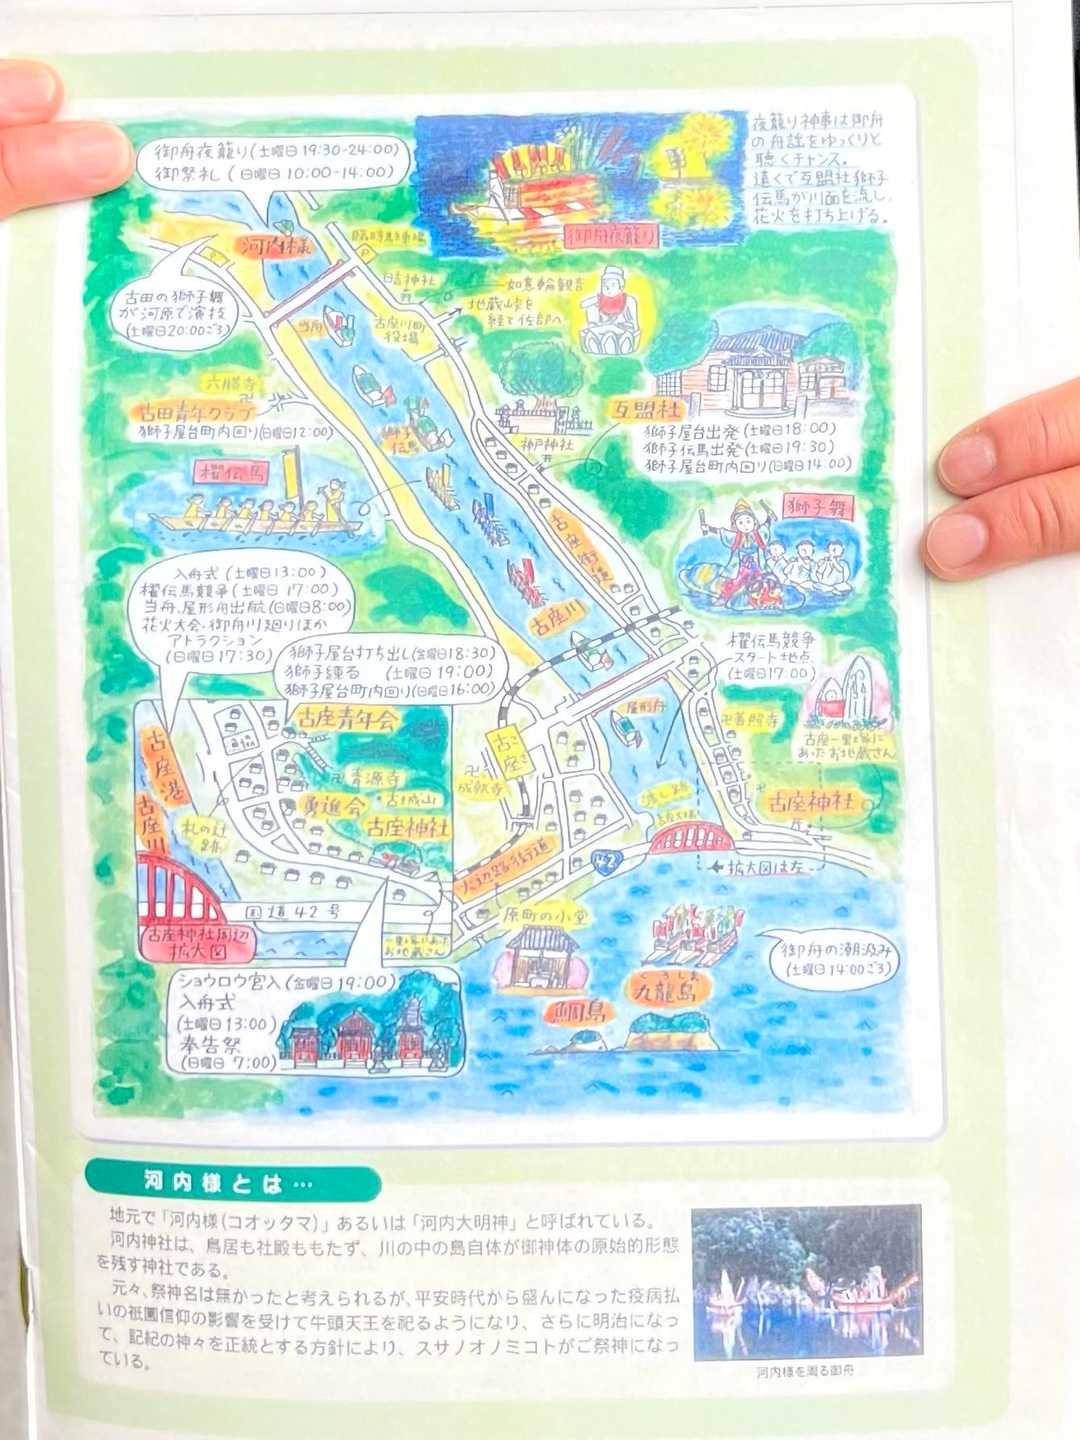 御舟夜籠り(土曜日19:30-24:00)
御祭礼(日曜日10:00-14:00)
夜籠り神事は御舟
の舟謡をゆっくりと
聴くチャンス。
遠くで互盟社獅子
伝馬が川面を流し、
花火を打ち上げる。
御舟夜籠り
河内様
臨時駐車場
P
P
古田の獅子舞
が河原で演技
(土曜日20:00ごろ)
日吉神社
如意輪観音
地蔵峠を
経て佐部へ
当舟
古座川町
役場
六勝寺
古田青年クラブ
獅子屋台町内回り(日曜日12:00)
獅子
伝馬
神戸神社
互盟社
獅子屋台出発(土曜日18:00)
獅子伝馬出発(土曜日19:30)
獅子屋台町内回り(日曜日14:00)
櫂伝馬
獅子舞
古座街道
古座川
入舟式(土曜日13:00)
櫂伝馬競争(土曜日17:00)
当舟、屋形舟出航(日曜日8:00)
花火大会・御舟川廻りほか
アトラクション
(日曜日17:30)
獅子屋台打ち出し(金曜日18:30)
獅子練る(土曜日19:00)
獅子屋台町内回り(日曜日16:00)
櫂伝馬競争
スタート地点
(土曜日17:00)
屋形舟
卍善照寺
古座一里塚に
あったお地蔵さん
古座青年会
古座港
卍青源寺
勇進会
古城山
古座神社
古座川
札の辻
跡
こざ
古座
卍成就寺
渡し跡
古座大橋
古座神社
拡大図は左
大辺路街道
42
国道42号
古座神社周辺
拡大図
一里塚にあった
お地蔵さん
原町の小堂
くろしま
九龍島
鯛島
御舟の潮汲み
(土曜日14:00ごろ)
ショウロウ宮入(金曜日19:00)
入舟式
(土曜日13:00)
奉告祭
(日曜日 7:00)
河内様とは…
地元で「河内様(コオッタマ)」あるいは「河内大明神」と呼ばれている。
河内神社は、鳥居も社殿ももたず、川の中の島自体が御神体の原始的形態
を残す神社である。
元々、祭神名は無かったと考えられるが、平安時代から盛んになった疫病払
いの祇園信仰の影響を受けて牛頭天王を祀るようになり、さらに明治になっ
て、記紀の神々を正統とする方針により、スサノオノミコトがご祭神になっ
ている。
河内様を周る御舟